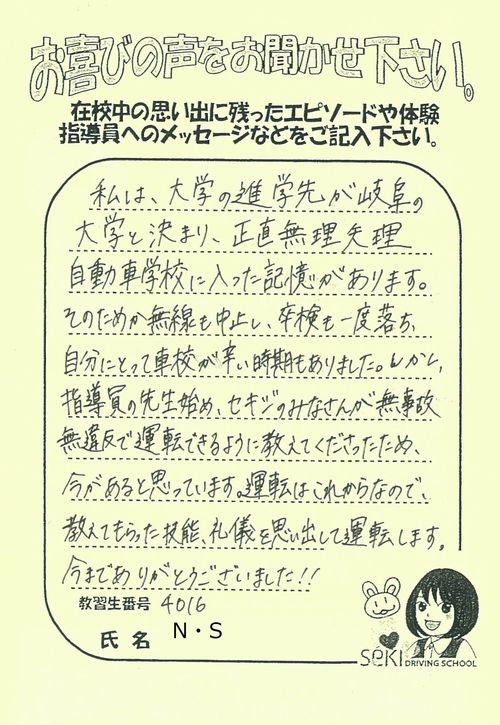 お喜びの声をお聞かせ下さい。
在校中の思い出に残ったエピソードや体験
指導員へのメッセージなどをご記入下さい。
私は、大学の進学先が岐阜の
大学と決まり、正直無理矢理
自動車学校に入った記憶があります。
そのためか無線も中止し、卒検も一度落ち、
自分にとって車校が辛い時期もありました。しかし、
指導員の先生始め、セキジのみなさんが無事故
無違反で運転できるように教えてくださったため、
今があると思っています。運転はこれからなので、
教えてもらった技能、礼儀を思い出して運転します。
今までありがとうございました!!
教習生番号 4016
氏名 N・S
SeKI DRIVING SCHOOL